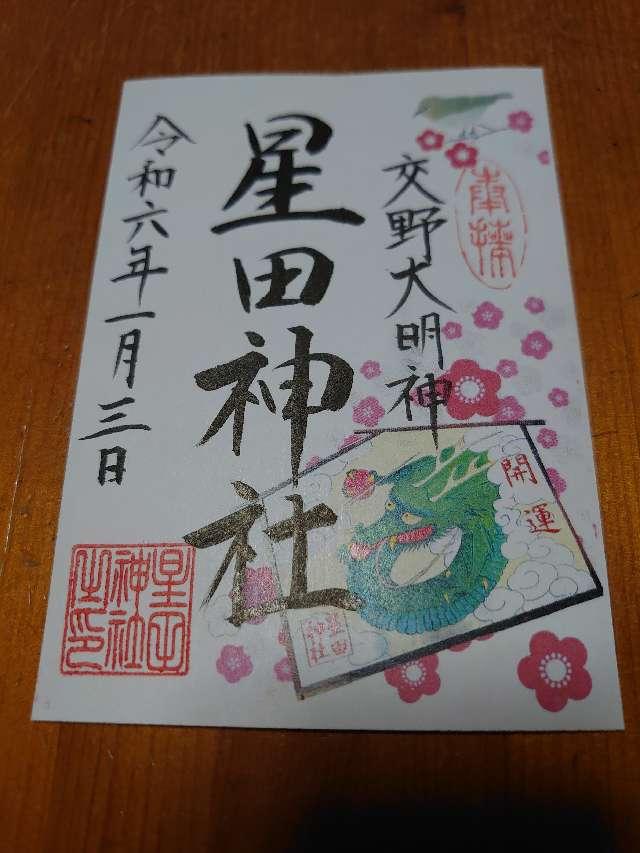 奉拝
交野大明神
星田神社
令和六年一月三日
開運
星田
神社
星田
神社
之印